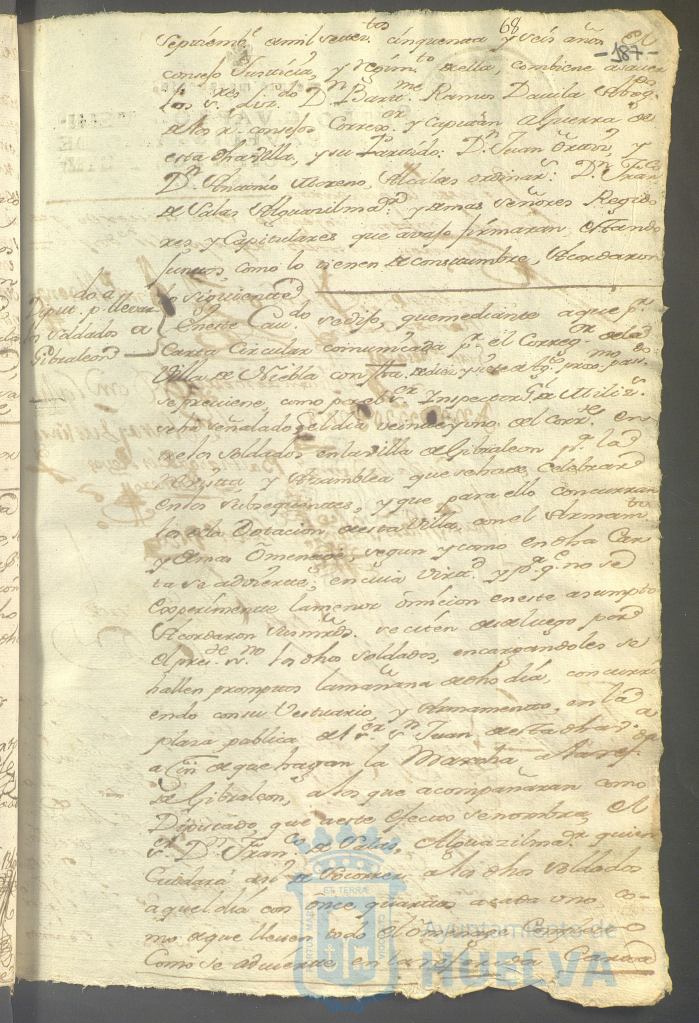 68
-187-
Septiemb.e de mil setec.tos cinquenta y seis años el
consejo Justicia, y Regim.to de ella, combiene a saver
los s.res liz.do D.n Bart.me Ramos Davila Abog.do
de los r. consejos Correx.or y Capitan a Guerra de
esta dha villa, y su Partido: D.n Juan y
D.n Antonio Moreno, Alcaldes ordinar.s D.n Fran.co
de Salas Alguazil ma.or y demas señores Regido
res, y Capitulares que avajo firmaran, estando
juntos como lo tienen de constumbre, Acordaron
lo siguiente
Diput. p.a llevar
los soldados a
Gibraleon
En este Cav.do se dijo, que mediante a que p.r
Carta Circular comunicada p.r el Correg.or de la
Villa de Niebla con fha. de diez y siete de
se previene, como por el s.or Inspector G. de Miliz.s
se ha señalado el dia veinte y uno del corr.te
de los soldados en la villa de Gibraleon p.a la
Revista y Asamblea que se ha de Celebrar
en los subsequentes, y que para ello concurran
los de la Dotacion de esta Villa, con el Armam.to
y demas Omenage, segun y como en dha Car
ta se advierte; en cuia virtd. y p.a q.e no se
experimente la menor omicion en este asumpto
Acordaron sus mrds. se citen desde luego por
el pres.te ss.no los dhos soldados, encargandoles se
hallen promptos la mañana de dho dia, concurri
endo con su Vestuario, y Armamento, en la
plaza publica de s.or s.n Juan de esta dha v.a
a fin de que hagan la Marcha a la ref.da
de Gibraleon, a los que acompañaran como
Diputado, que a este efecto se nombra, el
s.r D.n Fran.co de Salas, Alguazil ma.or quien
Cuidará de socorrer a los dhos soldados
aquel dia con once quartos a cada uno, co
mo de que lleven todo el omenage Completo
Como se advierte en la referida Carta
ET TERRÆ
Ayuntamiento de
HUELVA